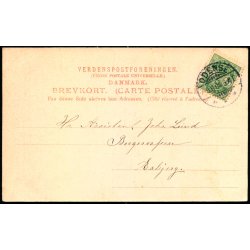 VERDENSPOSTFORENINGEN.
(UNION POSTALE UNIVERSELLE.)
DANMARK.
BREVKORT. (CARTE POSTALE.)
Paa denne Side skrives kun Adressen. (Côté réservé à l'adresse.)
Hr. Assistent John Lund
Esbjerg.